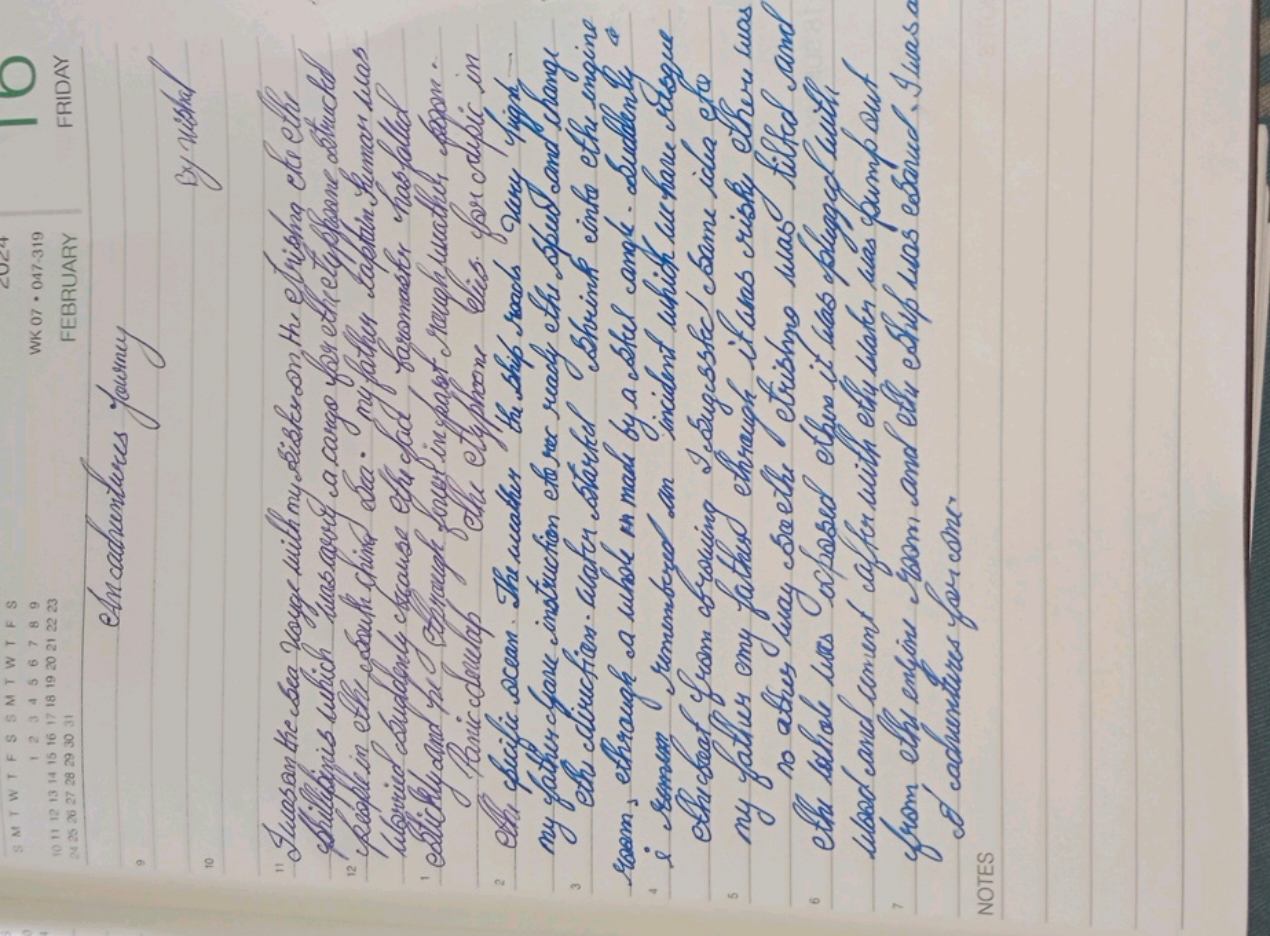 2024
16
WK 07 • 047-319
FEBRUARY FRIDAY
S M T W T F S S M T W T F S
1 2 3 4 5 6 7 8 9
10 11 12 13 14 15 16 17 18 19 20 21 22 23
24 25 26 27 28 29 30 31
An adventures Journey
9
By vishal
10
11 I was on the sea voyge with my sister on the trishna the the
phillipinis which was carry a cargo for the typhoone struckd
12 people in the south china sea. my father captain kumar was
worried suddenly because the had baromaster has falled
1 stickly and he through fowl in fast rough weather soon.
Panic develap the typhoone this for aupic in
2 the pacific ocean. The weather the ship roads very high
my father gave instruction to rec ready the speed and change
3 the direction. water started shrink into the engine
room, through a whole made by a steel angle. Suddenly a
4 i remembered an incident which we have resque
the boat from drowing I suggested some idea to
5 my father my father through it was risky there was
no athes way so the trishna was tilted and
6 the whole was exposed thus it was plugged with
wood and cement after with the water was pump out
7 from the engine room and the ship was saved. I was a
adventures for one.
NOTES